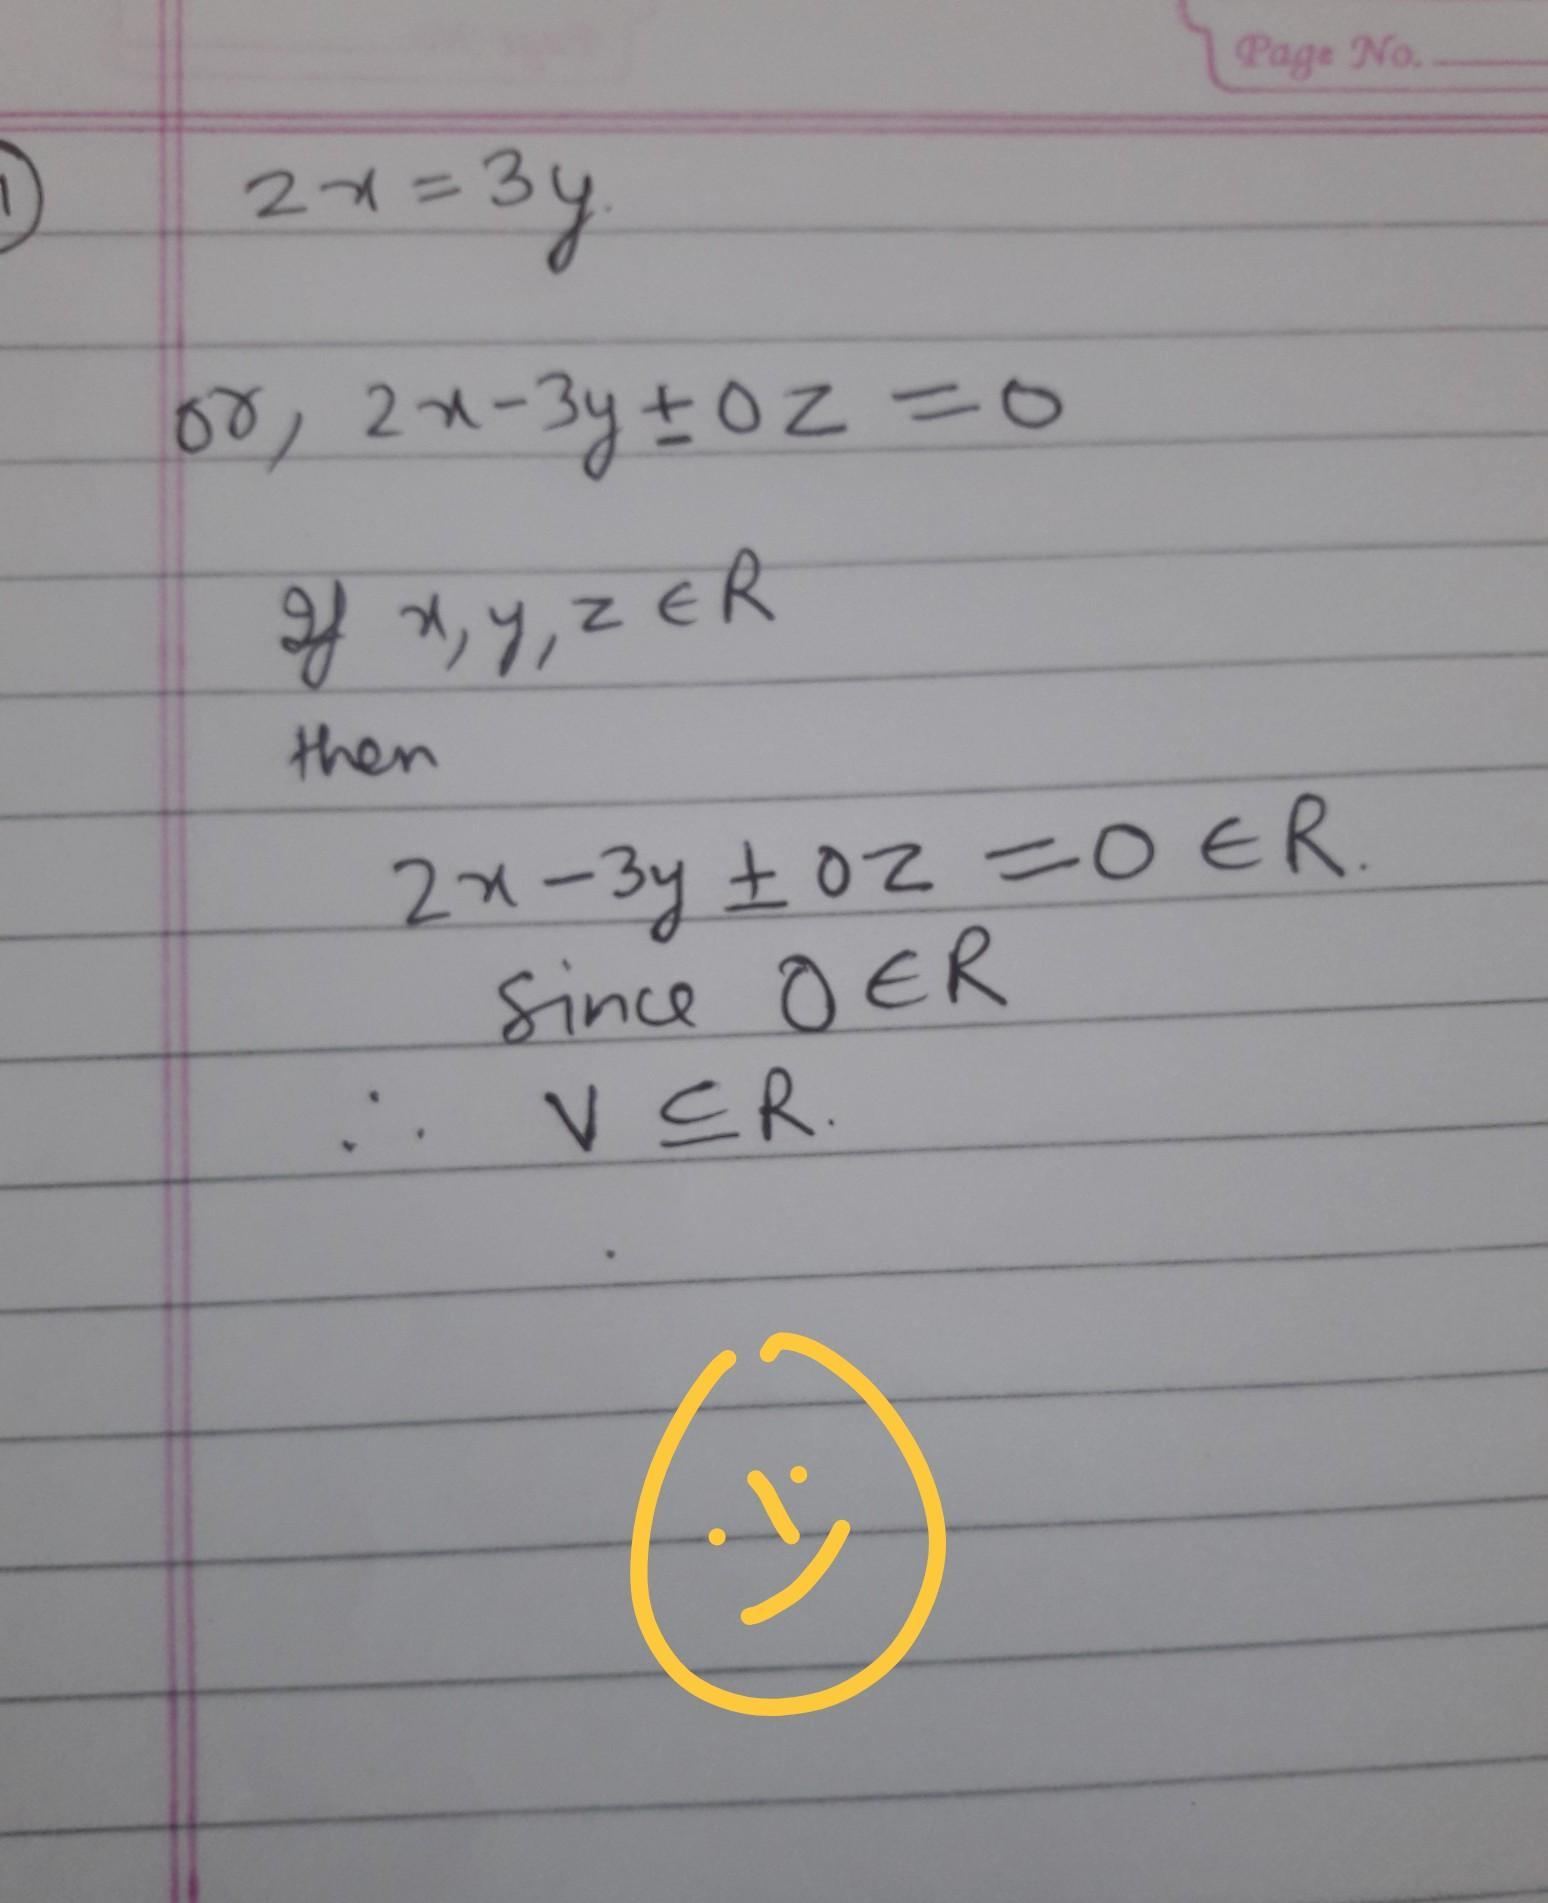 Page No.
1
2x=3y.
or, 2x-3y±0z=0
If x,y,z∈R
then
2x-3y±0z=0∈R.
Since 0∈R
∴ V⊆R.